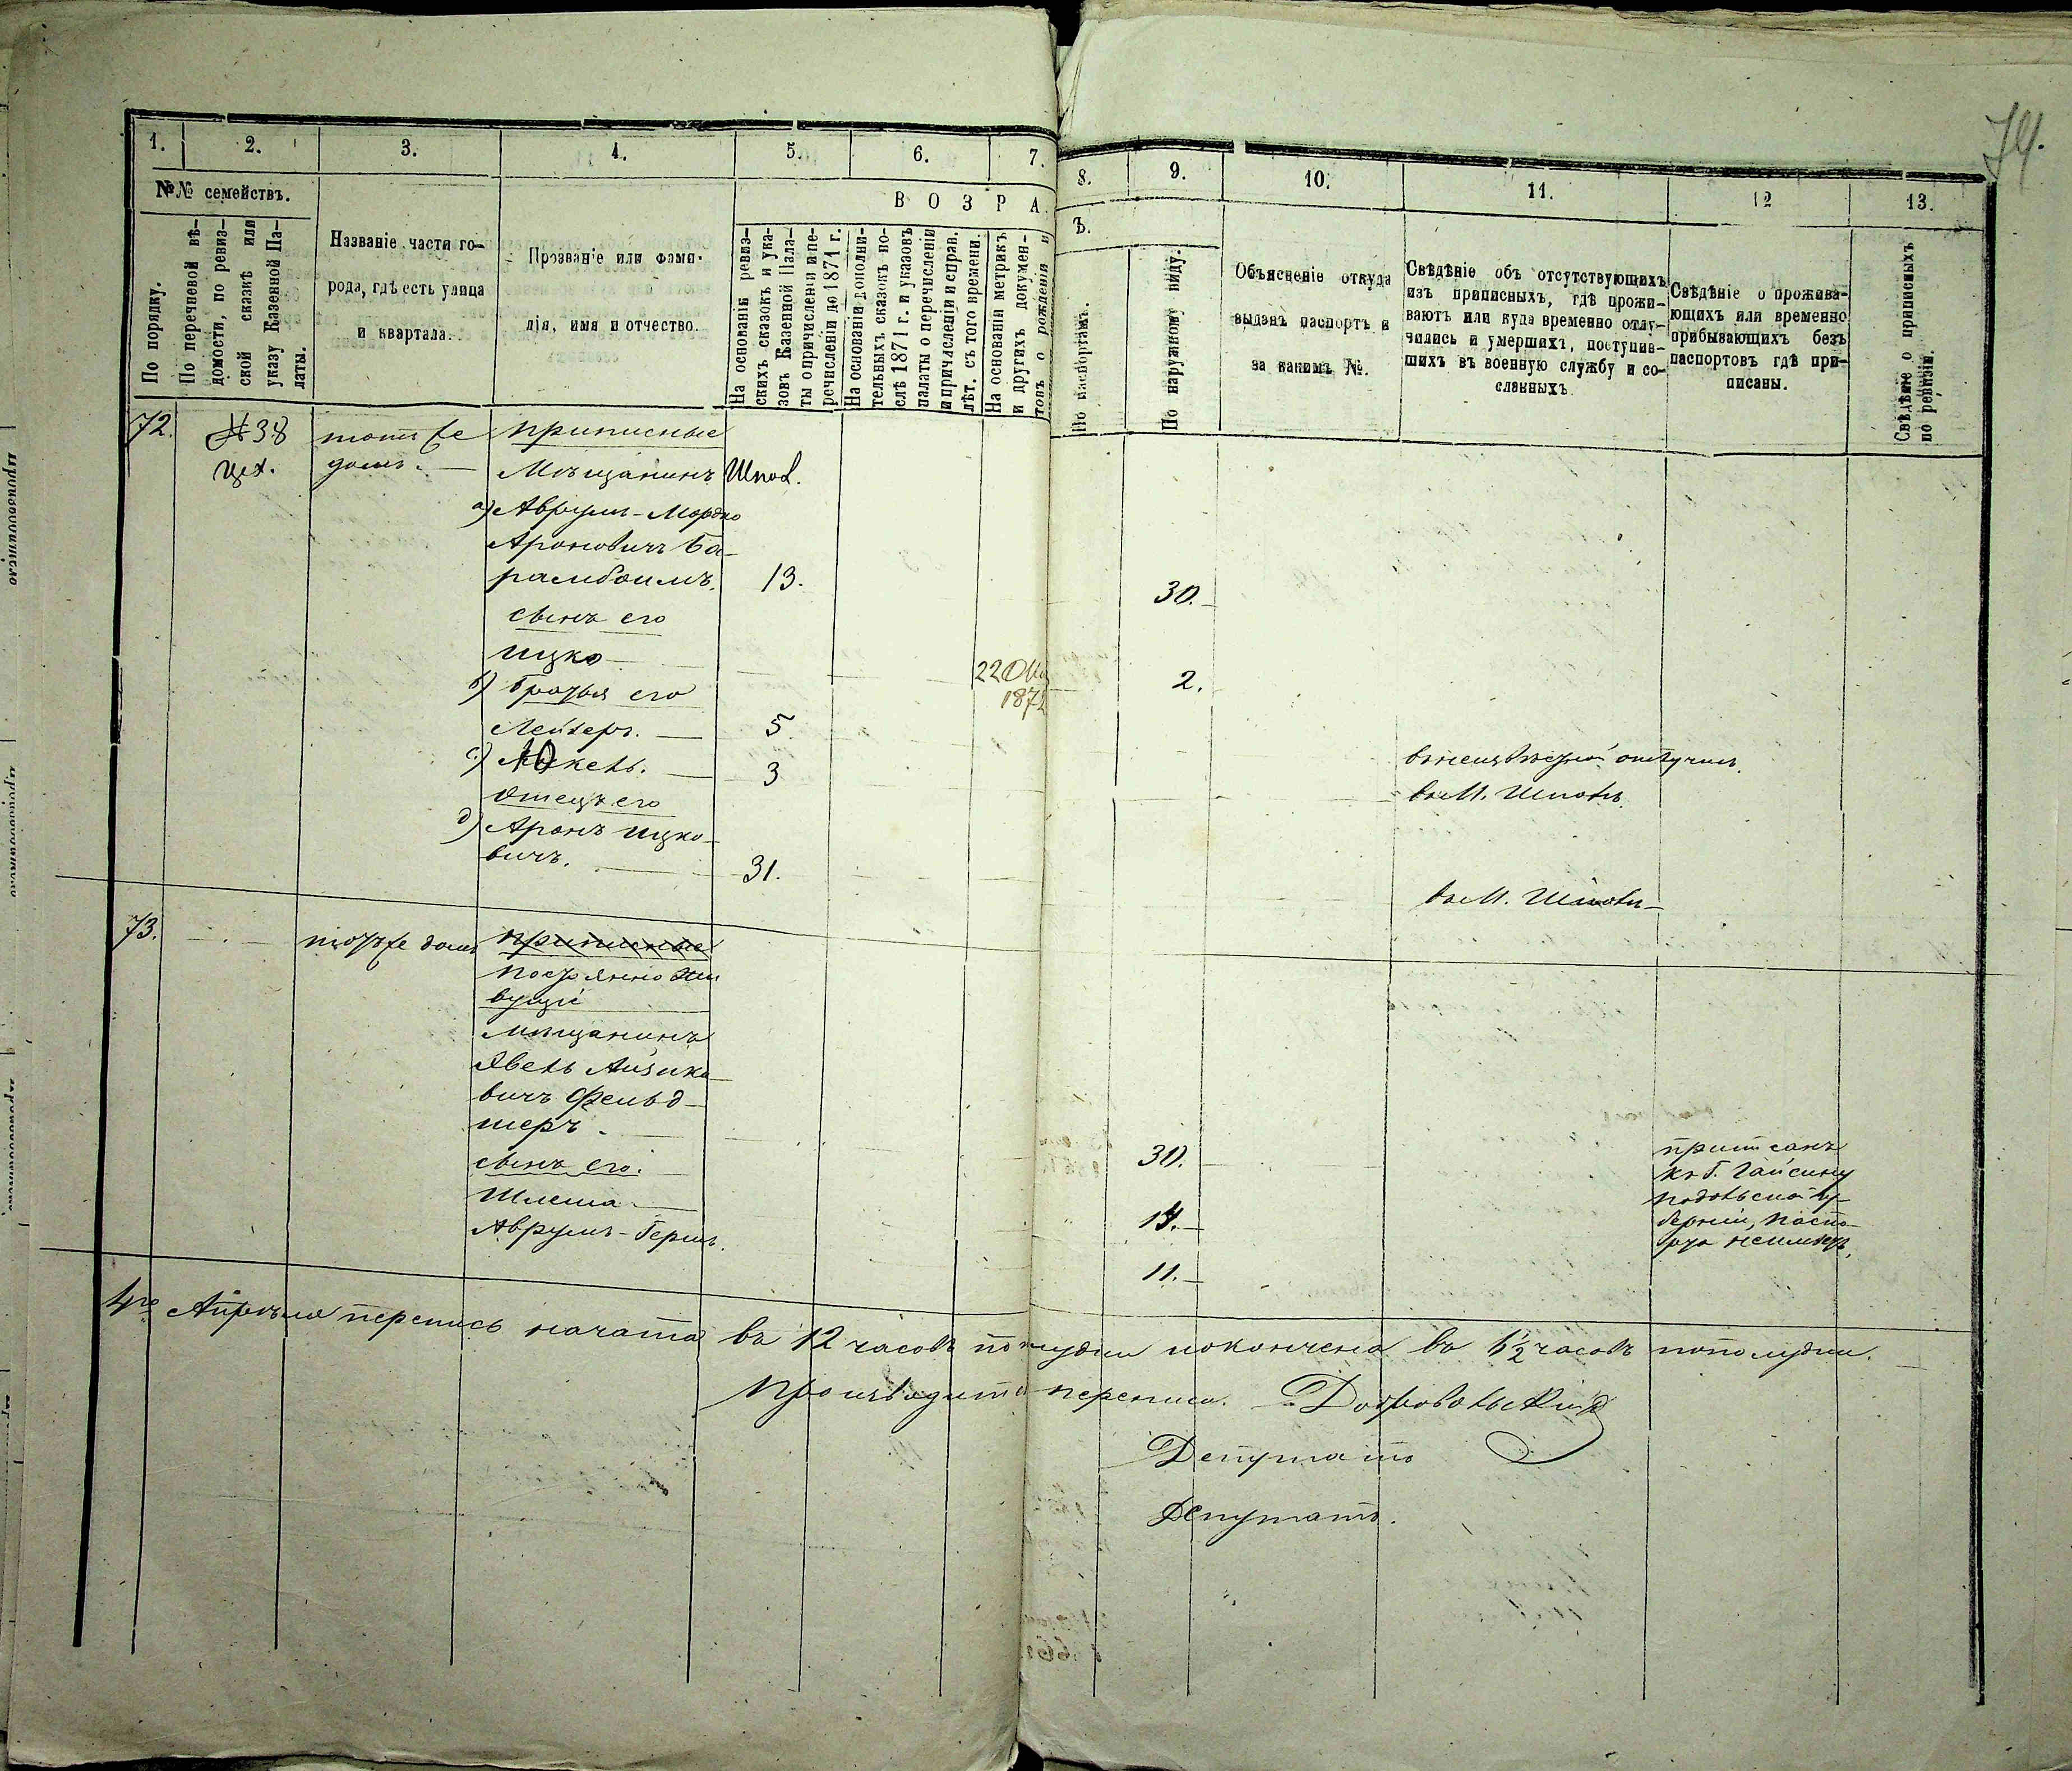 74.
1. 2. 3. 4. 5. 6. 7. 8. 9. 10. 11. 12 13.
№№ семействъ.
По порядку.
По перечневой вѣ-
домости, по ревиз-
ской сказкѣ или
указу Казенной Па-
латы.
Названіе части го-
рода, гдѣ есть улица
и квартала.
Прозваніе или фами-
лія, имя и отчество.
ВОЗРА
Ъ.
На основаніи ревиз-
скихъ сказокъ и ука-
зовъ Казенной Пала-
ты о причисленіи и пе-
речисленіи до 1871 г.
На основаніи дополни-
тельныхъ сказокъ по-
слѣ 1871 г. и указовъ
палаты о перечисленіи
и причисленіи и справ.
лѣт. съ того времени.
На основаніи метрикъ
и другихъ докумен-
товъ о рожденіи и
По паспортамъ.
По наружному виду.
Объясненіе откуда
выданъ паспортъ и
за какимъ №.
Свѣдѣніе объ отсутствующихъ
изъ приписныхъ, гдѣ прожи-
ваютъ или куда временно отлу-
чились и умершихъ, поступив-
шихъ въ военную службу и со-
сланныхъ
Свѣдѣніе о прожива-
ющихъ или временно
прибывающихъ безъ
паспортовъ гдѣ при-
писаны.
Свѣдѣніе о приписныхъ
по ревизіи.
72. №38 томъ же приписные
цех. домъ. Мѣщанинъ Шпол.
а) Аврумъ-Мордко
Ароновичъ Ба-
рамбоимъ. 13. 30.
сынъ его
Ицко 22 Окт 2.
1872
б) братья его
Лейзеръ. 5.
с) Юкель. 3
въ М. Шполѣ.
отецъ его
д) Аронъ Ицко-
вичъ. 31. въ М. Шполѣ
73. тотъ же домъ приписные
постоянно жи
вущіе
мѣщанинъ
Явель Айзико
вичъ Фельд-
шеръ 30. приписанъ
къ Г. Гайсину
Подольской гу-
берніи, паспо-
рта неимѣетъ.
сынъ его.
Шлема 14.
Аврумъ-Гершъ. 11.
4го Апрѣля перепись начата въ 12 часовъ пополудни и окончена въ 1½ часовъ пополудни.
Производитъ перепись.
Депутатъ
Депутатъ.